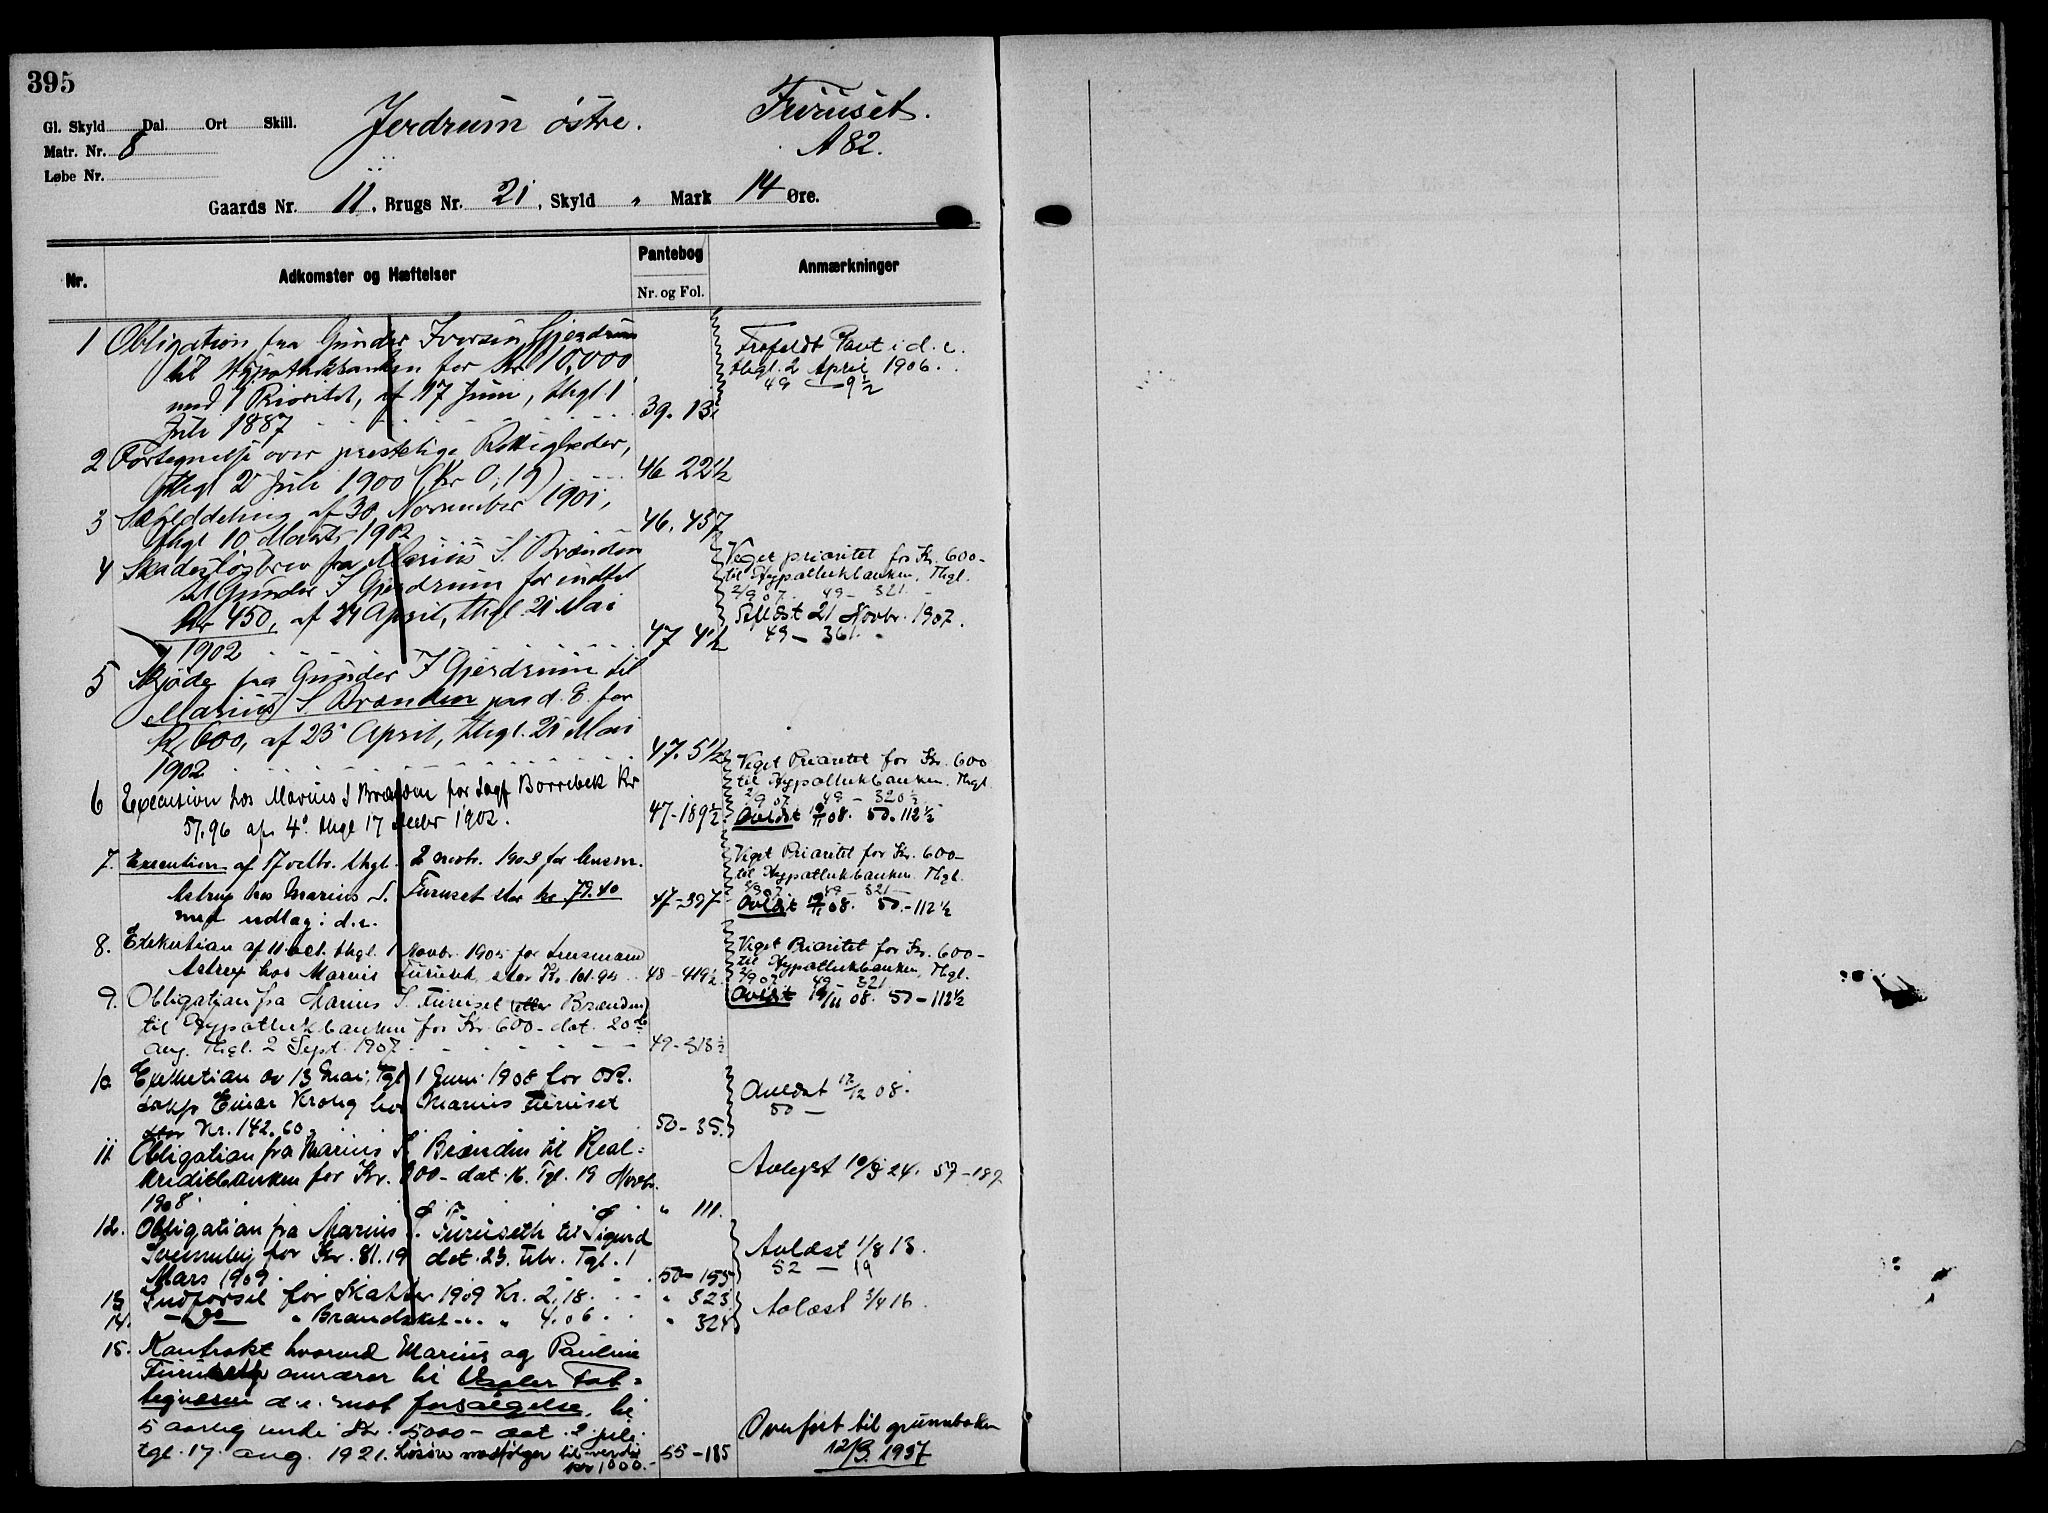 395
Gl. Skyld Dal. Ort Skill.
Matr. Nr. 8
Løbe Nr.
Jerdrum østre.
Furuset.
A 82.
Gaards Nr. 11, Brugs Nr. 21, Skyld „ Mark 14 Øre.
Nr. Adkomster og Hæftelser Pantebog Anmærkninger
Nr. og Fol.
1 Obligation fra Gunder Iversen Gjerdrum
til Hypothekbanken for Kr 10,000
med 1 Prioritet, af 17 Juni, thgl. 1
Juli 1887 39. 13.
Frafaldt Pant i d. e.
thgl. 2 April 1906.
49 — 9½
2 Fortegnelse over prestelige Rettigheder,
thgl 2 Juli 1900 (Kr 0,19) 46 22½
3 Skylddeling af 30 November 1901,
thgl 10 Marts 1902 46. 457
4 Skadesløsbrev fra Marius S Brænden
til Gunder I Gjerdrum for indtil
Kr 450, af 24 April, thgl. 21 Mai
1902 47 4½
Veget prioritet for Kr. 600-
til Hypothekbanken, Thgl.
2/9 07. 49 - 321.
Aflæst 21 Novbr. 1907.
49 — 361.
5 Skjøde fra Gunder I Gjerdrum til
Marius S. Brænden paa d. E. for
Kr 600, af 23 April, thgl. 21 Mai
1902 47. 5½
6 Execution hos Marius S Brænden for Sagf Borrebek Kr
57,96 af 4de thgl 17 Decbr 1902. 47-189½
Veget Prioritet for Kr. 600
til Hypothekbanken. Thgl
2/9 07. 49 - 320½
Avlæst 12/11 08. 50. 112½
7. Execution af 17 octbr. thgl. 2 novbr. 1903 for lensm.
Astrup hos Marius S. Furuset stor kr 79.40
med udlæg i d. e. 47-397
Veget Prioritet for Kr. 600-
til Hypothekbanken. Thgl.
2/9 07. 49 - 321
Avlæst 12/11 08. 50.-112½
8. Exekution af 11 oct. thgl. 1 Novbr. 1905 for Lensmand
Astrup hos Marius Furuset, stor Kr. 101.95 48-419½
Veget Prioritet for Kr. 600-
til Hypothekbanken, Thgl.
2/9 07. 49 - 321
Avlæst 12/11 08. 50-112½
9. Obligation fra Marius S. Furuset (eller Brænden)
til Hypothekbanken for Kr. 600- dat. 20de
Aug. Thgl. 2 Sept. 1907 49-318½
10 Exekution av 13 Mai, Tgl 1 Juni 1908 for OR.
sakf Einar Krohg hos Marius Furuset
stor Kr. 142.60. 50-35.
Avlæst 12/12 08.
50 —
11 Obligation fra Marius S. Brænden til Real=
kreditbanken for Kr. 800- dat. 16. Tgl. 19 Novbr.
1908 „ 111.
Avlyst 10/9 24. 57-187
12. Obligation fra Marius S. Furuseth til Sigurd
for Kr. 81.19 dat. 23. Febr. Tgl. 1
Mars 1909. 50-155
Avlæst 1/8 13.
52 — 19
13 Indførsel for Skatter 1909 Kr. 2,18. „ 323
14. — Do — „ Brandskat „ „ 4.06 „ 324
Avlæst 3/4 16.
15. Kontrakt hvorved Marius og Pauline
Furuseth overdrar til Fat=
tigvæsen d. e. mot forsørgelse, til
5 aarlig verdi Kr. 5000- dat. 2 juli.
tgl. 17. aug. 1921. Løsøre medfølger til verdi 55-185
kr 1000.-
Overført til grunnboken
12/3. 1937